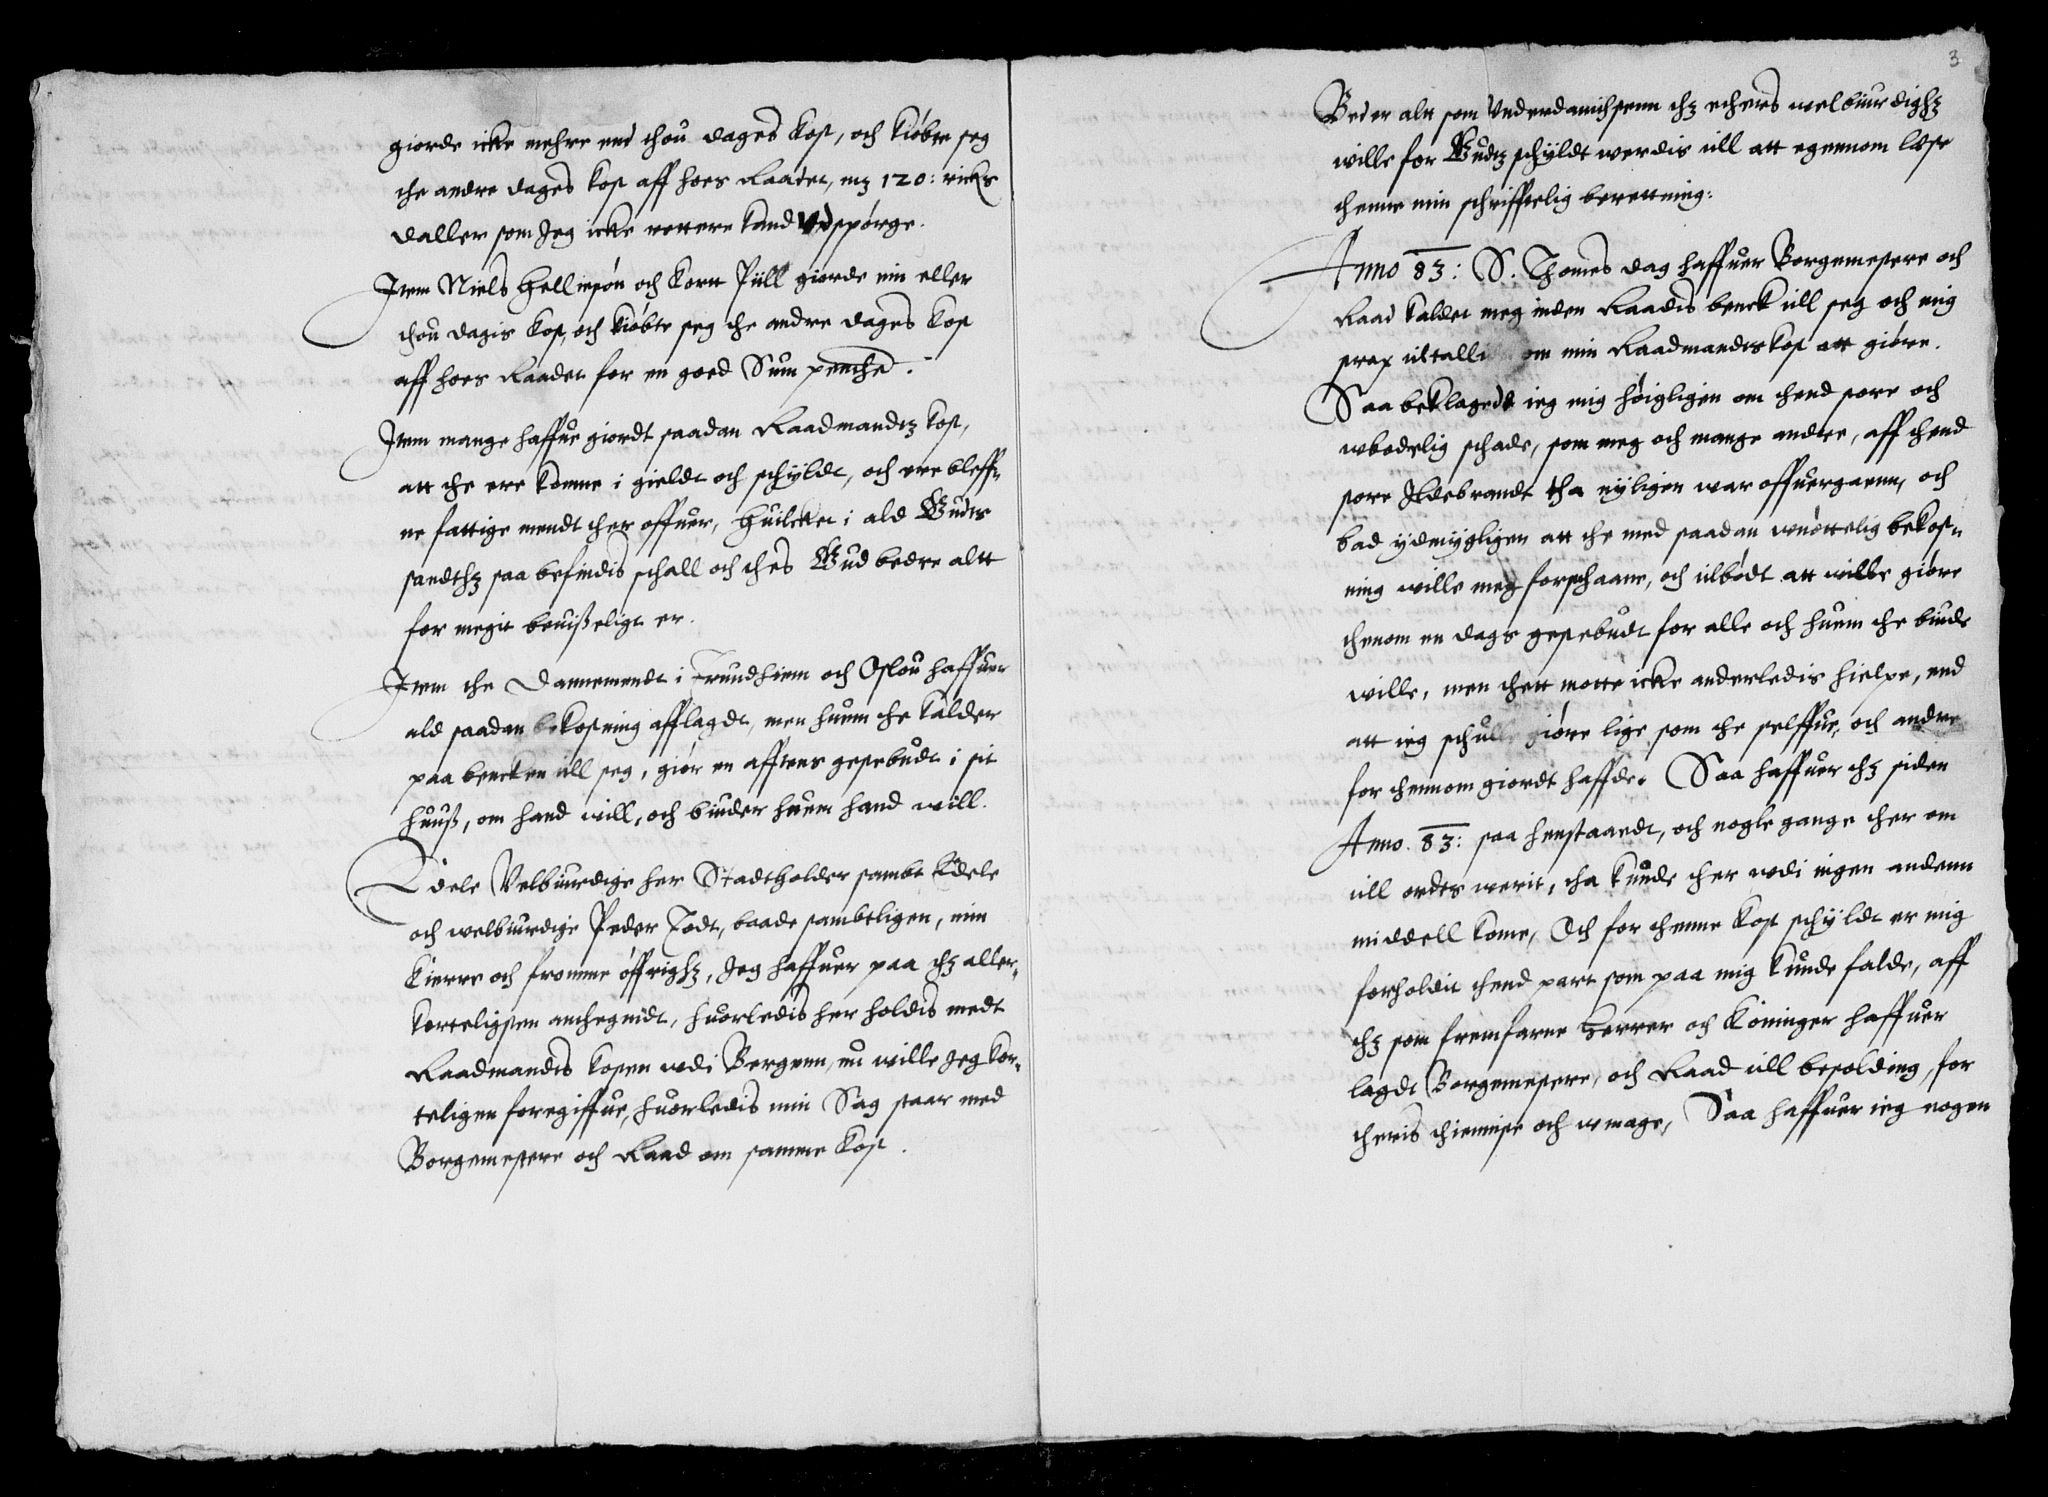 giorde icke mehre end thou dages Kost, och kiøbte seg
the andre dages kost aff hoes Raadet, mz 120: ricks
daller som Jeg icke rettere kand Vdspørge.
Item Niels Helliesøn och Kortt Piill giorde en eller
thou dagis kost, och kiøbte seg the andre dages kost
aff hoes Raadet for en goed Sum penche.
Item mange haffue giordt saadan Raadmandtz kost,
att the ere komne i gieldt och schyldt, och ere bleff-
ne fattige mendt ther offuer, Huilcket i ald Gudts
sandthz saa befindis schall och thes Gud bedre altt
for megit beuißeligt er.
Item the Dannemendt i Trundhiem och Oslou haffuer
ald saadan bekostning afflagdt, men huem the kalder
paa bencken till seg, giør en afftens gestebudt i sit
huuß, om hand will, och biuder huem hand will.
Edele Velbiurdige her Stadtholder sambt Edele
och welbiurdige Peder Todt, baade sambtligen, min
kierre och fromme øffrighz, Jeg haffuer paa thz aller-
korteligsten anthegnidt, huorledis her holdis medt
Raadmandts kosten wdi Bergenn, nu wille Jeg kor-
teligen foregiffue, huorledis min Sag staar med
Borgemestere och Raad om samme kost.
3
Beder altt som Vnderdanichsenn thz ethers welbiurdighz
wille for Gudtz schyldt werdis till att egennom læse
thenne min schrifftelig berettning:
Anno 83: S. Thomes dag haffuer Borgemestere och
Raad kaldet meg inden Raadis benck till seg och mig
strax tiltallid om min Raadmandtskost att giøre.
Saa beklagede ieg mig høigligen om thend store och
wbodelig schade, som meg och mange andre, aff thend
store Ildebrandt tha nyligen war offuergaenn, och
bad ydmygligen att the med saadan wnøttelig bekost-
ning wille meg forschaane, och tilbødt att wille giøre
thenom en dags gestebudt for alle och huem the biude
wille, men thett motte icke anderledis hielpe, end
att ieg schulle giøre lige som the selffue, och andre
for thennom giordt haffde. Saa haffuer thz siden
Anno. 83: saa henstaaendt, och nogle gange ther om
till ordts werit, tha kunde ther wdi ingen andenn
middell kome, Och for thenne kost schyldt er mig
forholdit thend part som paa mig kunde falde, aff
thz som fremfarne Herrer och Køninger haffuer
lagdt Borgemestere, och Raad till besolding, for
theris thienniste och wmage, Saa haffuer ieg nogen